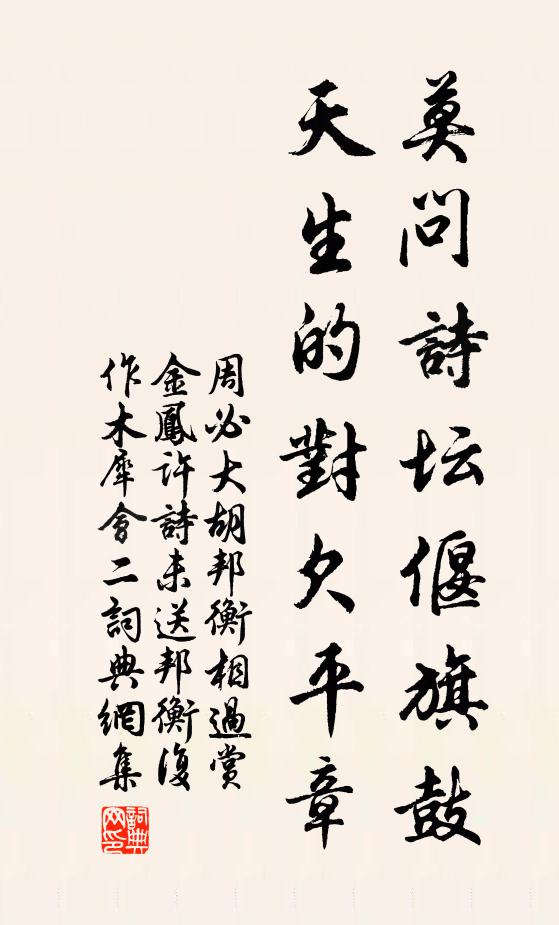 莫問詩坛偃旗鼓
天生的對欠平章
周必大胡邦衡相過賞
金鳳許詩未送邦衡復
作木犀會二詞典網集
詞典
网印